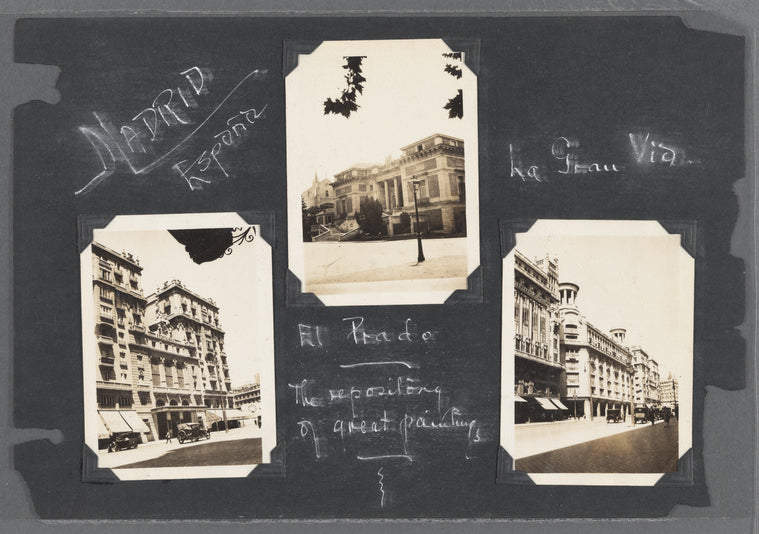 MADRID
España
La Gran Via
El Prado
The repository
of great paintings